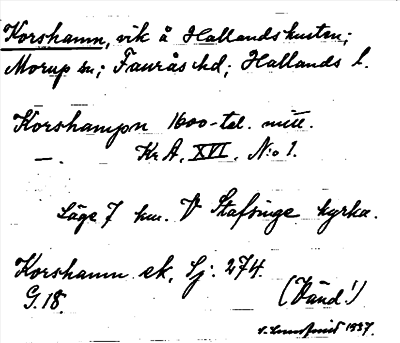 Korshamn, vik å Hallandskusten;
Morup sn; Faurås hd; Hallands l.
Korshampn 1600-tal. mitt.
—. Kr A, XVI, N:o 1.
Läge 7 km. V Stafsinge kyrka.
Korshamn ek, Sj: 274.
G. 18.
(Vänd!)
1937.